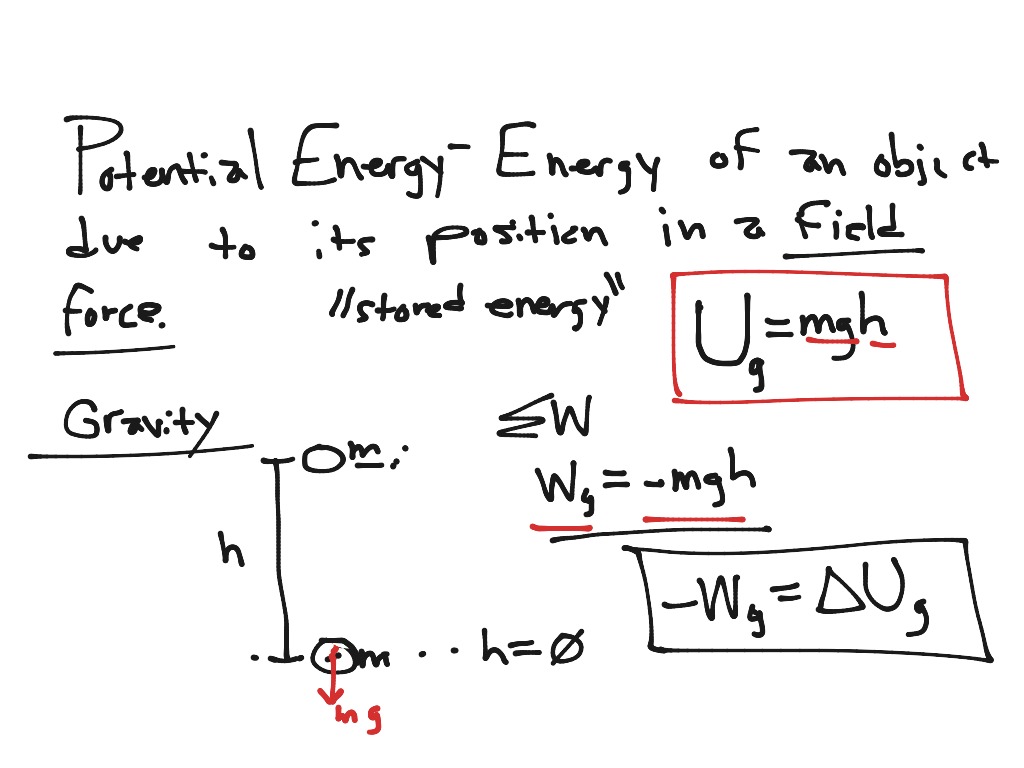 Potential Energy - Energy of an object
due to its position in a field
force. "stored energy"
Ug = mgh
Gravity
ΣW
m
Wg = -mgh
h
-Wg = ΔUg
m h = ∅
mg